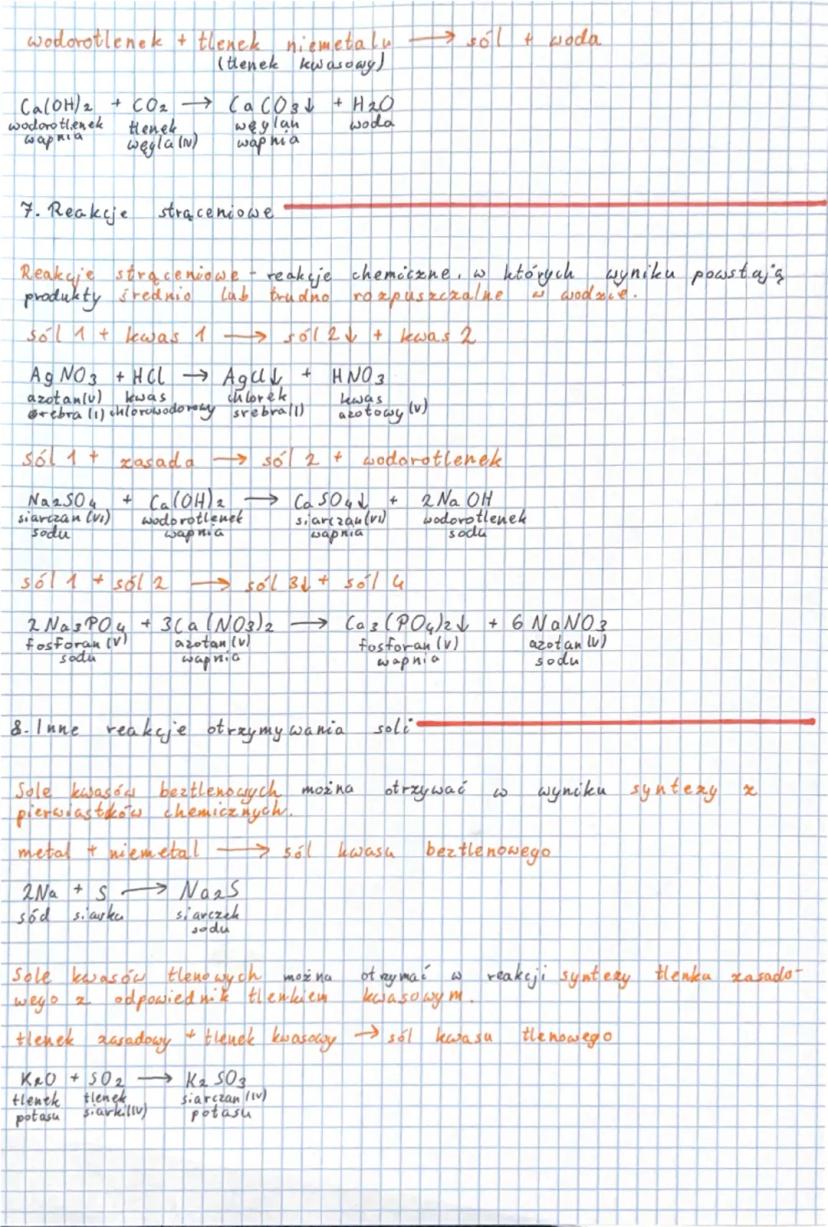 wodorotlenek + tlenek niemetalu → sól + woda
(tlenek kwasowy)
Ca(OH)2 + CO2 → CaCO3↓ + H2O
wodorotlenek tlenek węglan woda
wapnia węgla (IV) wapnia
7. Reakcje strąceniowe
Reakcje strąceniowe - reakcje chemiczne, w których wyniku powstają
produkty średnio lub trudno rozpuszczalne w wodzie.
sól 1 + kwas 1 → sól 2↓ + kwas 2
AgNO3 + HCl → AgCl↓ + HNO3
azotan(V) kwas chlorek kwas
srebra (I) chlorowodorowy srebra(I) azotowy (V)
sól 1 + zasada → sól 2 + wodorotlenek
Na2SO4 + Ca(OH)2 → CaSO4↓ + 2NaOH
siarczan (VI) wodorotlenek siarczan(VI) wodorotlenek
sodu wapnia wapnia sodu
sól 1 + sól 2 → sól 3↓ + sól 4
2Na3PO4 + 3Ca(NO3)2 → Ca3(PO4)2↓ + 6NaNO3
fosforan (V) azotan (V) fosforan (V) azotan (V)
sodu wapnia wapnia sodu
8. Inne reakcje otrzymywania soli
Sole kwasów beztlenowych można otrzywać w wyniku syntezy z
pierwiastków chemicznych.
metal + niemetal → sól kwasu beztlenowego
2Na + S → Na2S
sód siarka siarczek
sodu
Sole kwasów tlenowych można otrzymać w reakcji syntezy tlenku zasado-
wego z odpowiednik tlenkiem kwasowym.
tlenek zasadowy + tlenek kwasowy → sól kwasu tlenowego
K2O + SO2 → K2SO3
tlenek tlenek siarczan (IV)
potasu siarki(IV) potasu